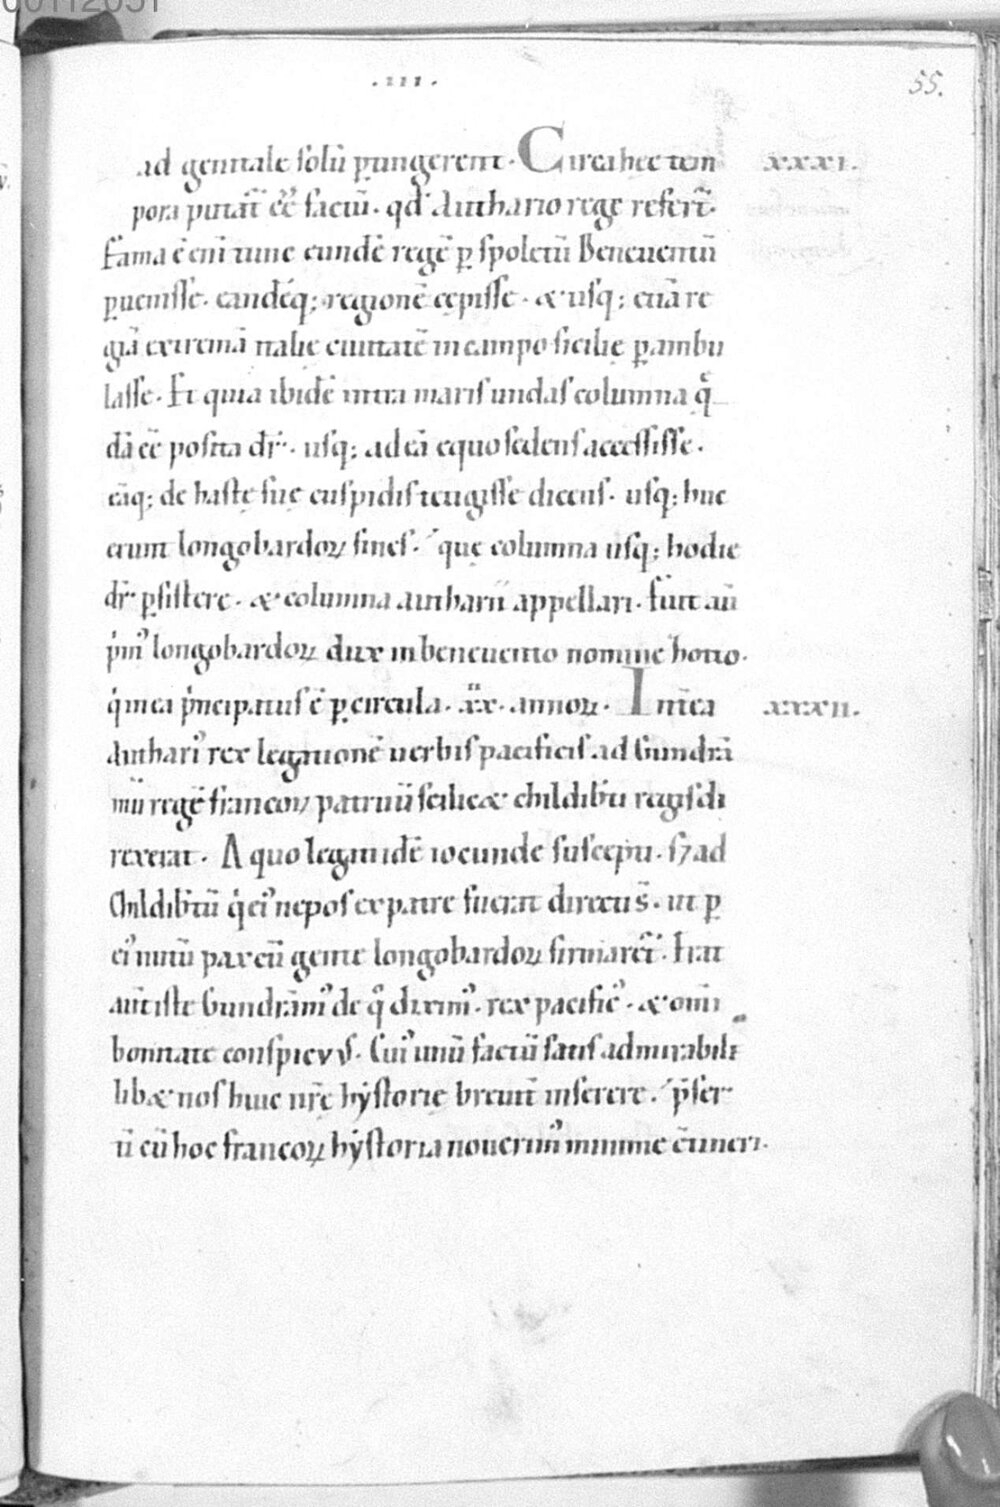 00112051
.III.
55.
ad genitale solū ꝑungerent. Circa hec tem xxxi.
pora putat̄ eē̄ factū. qd̄ Authario rege refert̄.
Fama ē enī tunc eundē regē ꝑ spoletū Beneuentū
ꝑuenisse. eandēq; regionē cępisse. & usq; etiā re
giā extremā italię ciuitatē in campo sicilię ꝑambu
lasse. Et quia ibidē intra maris undas columna q̄
dā eē̄ posita dr̄. usq; ad eā equo sedens accessisse.
eāq; de hastę suę cuspidis tetigisse dicens. usq; huc
erunt longobardoꝝ fines. quę columna usq; hodie
dr̄ ꝑsistere. & columna autharii appellari. Fuit aū
p̓mꝰ longobardoꝝ dux in beneuento nomine hotto.
q̓ in ea p̓ncipatus ē ꝑ circula. xx. annoꝝ. Int̄ea xxxii.
Autharꝰ rex legationē uerbis pacificis ad Gundrā
mū regē francoꝝ patruū scilic& childib̄ti regis di
rexerat. A quo legati idē iocunde suscepti. s; ad
Childib̄tū q̓ eiꝰ nepos ex patre fuerat directi s̄. ut ꝑ
eiꝰ nutū pax cū gente longobardoꝝ firmaret̄. Erat
aūt iste Gundrāmꝰ de q̊ diximꝰ. rex pacificꝰ. & om̄i
bonitate conspicuus. Cuiꝰ unū factū satis admirabile
lib& nos huic nr̄e hẏstorię breuit̄ inserere. p̄ser
tī cū hoc francoꝝ hẏstoria nouerimꝰ minime c̄tineri.